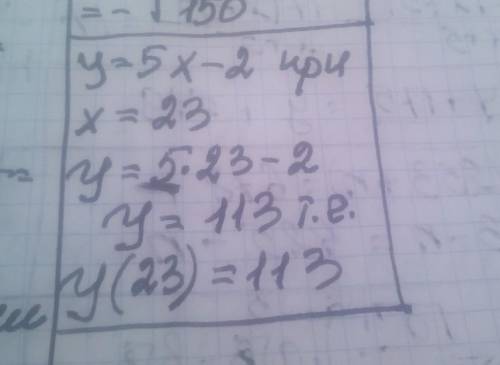 = - √150
y = 5x - 2 при
x = 23
y = 5 · 23 - 2
y = 113 т.е.
y(23) = 113